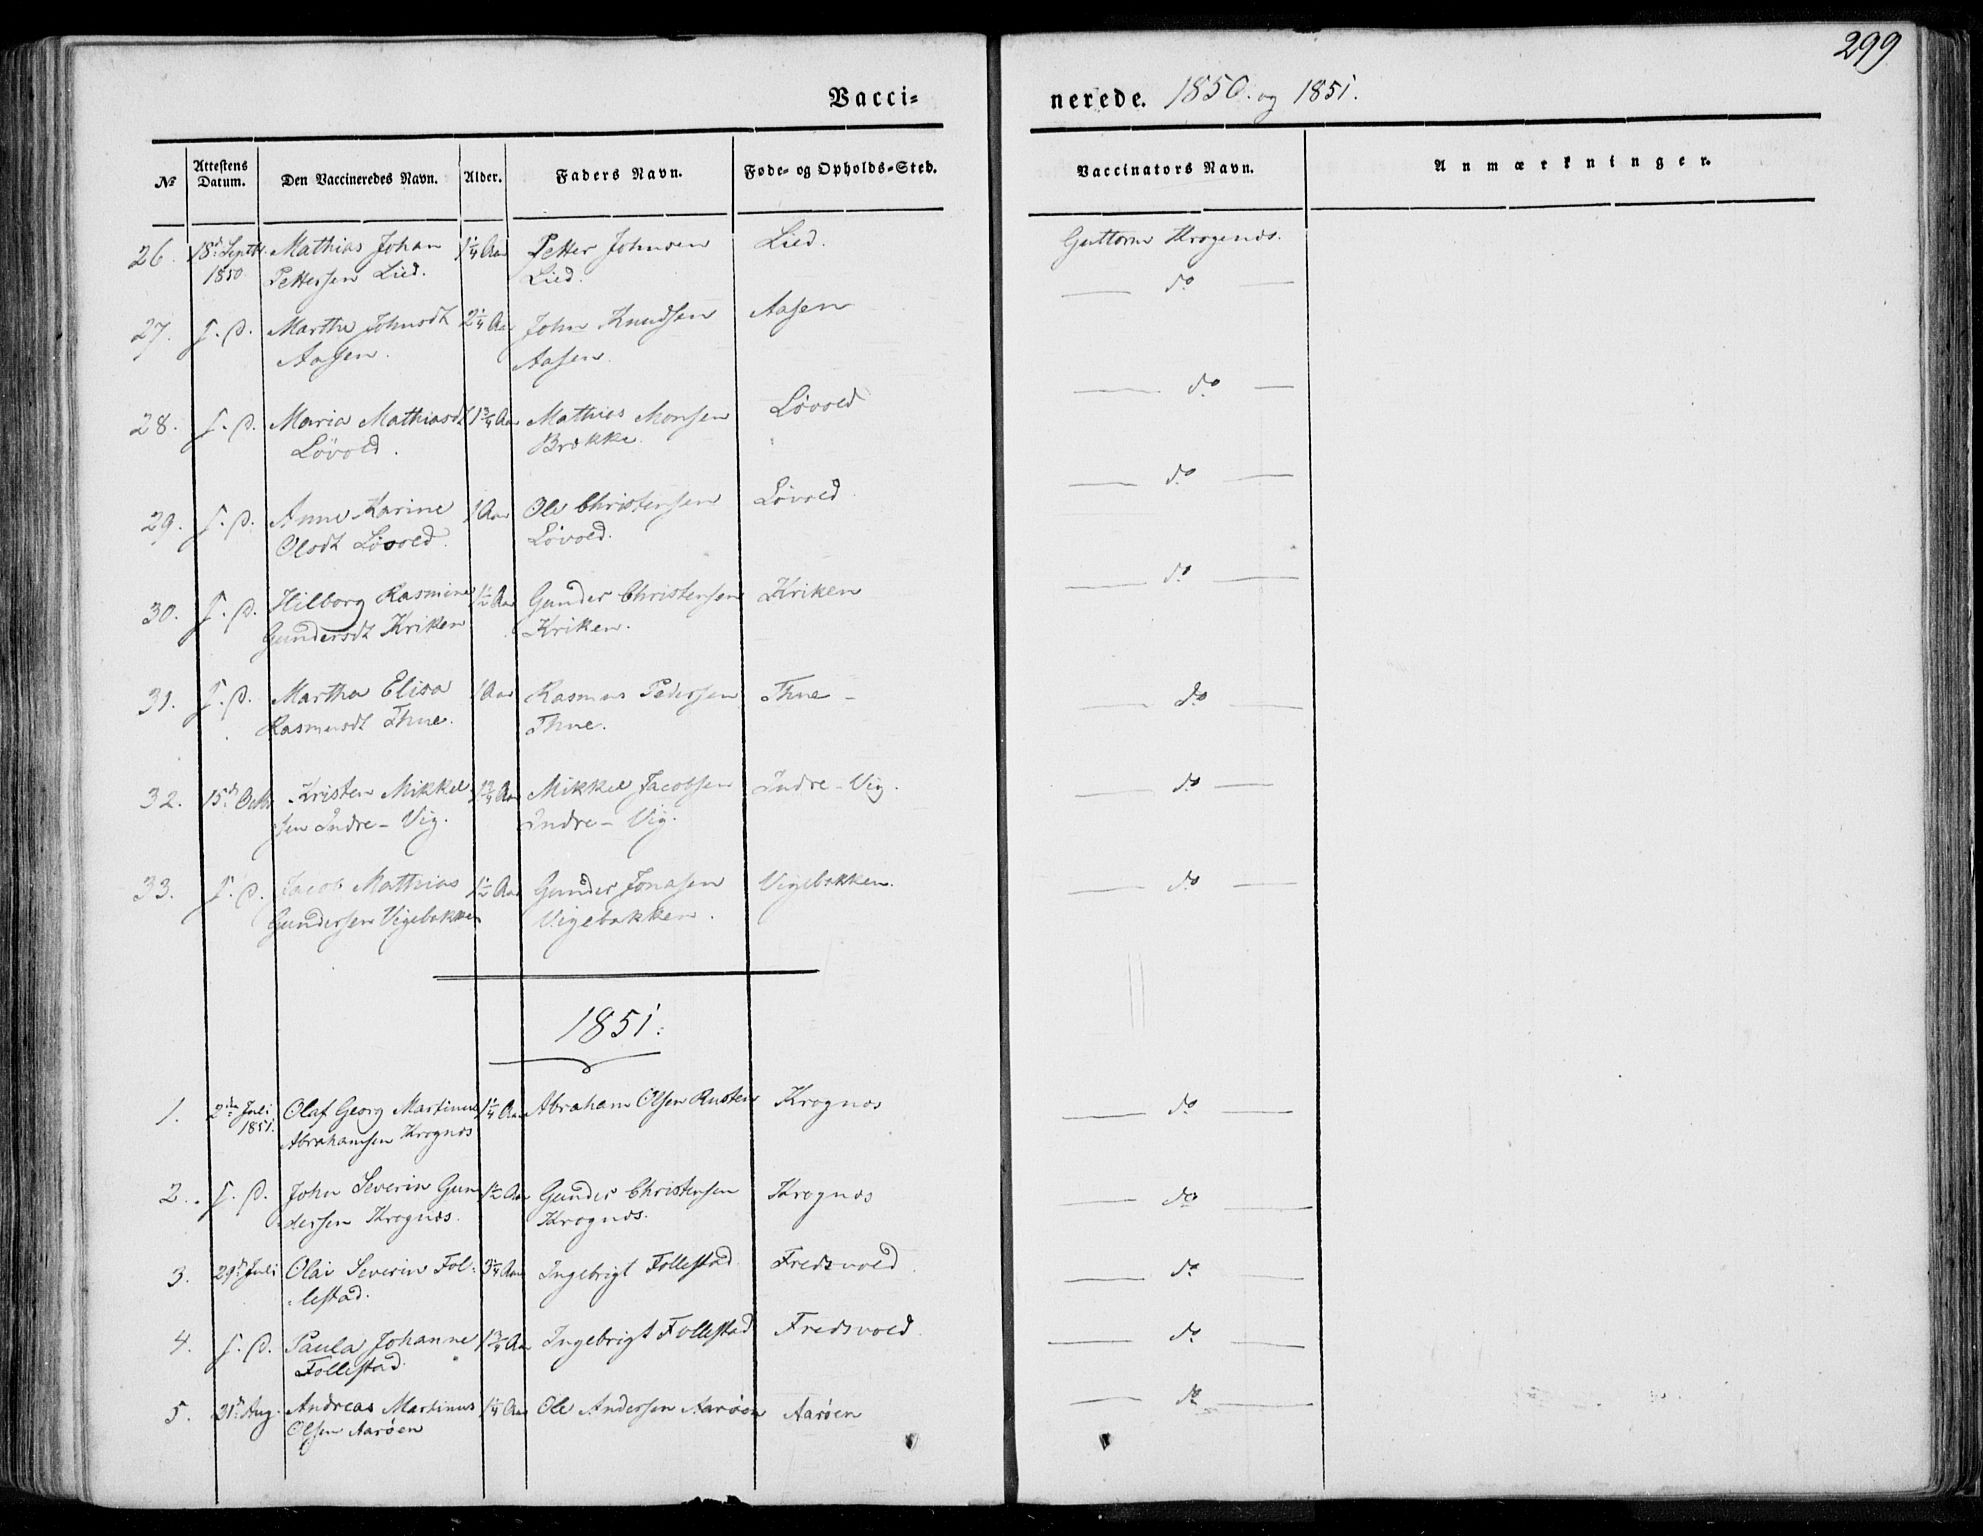 299
Vacci-nerede. 1850. og 1851.
No Attestens Datum. Den Vaccineredes Navn. Alder. Faders Navn. Føde- og Opholds-Sted. Vaccinators Navn. Anmærkninger.
26. 18d Septbr. Mathias Johan 1¼ Aar Petter Johnsen Lied. Guttorm Krogenæs.
1850 Pettersen Lied. Lied.
27. s. D. Marthe Johnsdt 2¼ Aar John Knudsen Aasen — do —
Aasen. Aasen.
28. s. D. Maria Mathiasdt 1¾ Aar Mathias Monsen Løvold — do —
Løvold. Brække.
29. s. D. Anne Karine 1 Aar Ole Christensen Løvold. — do —
Olsdt Løvold. Løvold.
30. s. D. Hilborg Rasmine 1½ Aar Gunder Christensen Kriken — do —
Gundersdt Kriken Kriken.
31. s. D. Martha Elisa 1 Aar Rasmus Pedersen Thue — do —
Rasmusdt Thue. Thue.
32. 15d Octbr Kristen Mikkel 1¾ Aar Mikkel Jacobsen Indre-Vig. — do —
sen Indre-Vig. Indre-Vig.
33. s. D. Jacob Mathias 1½ Aar Gunder Jonasen Vigebakken. — do —
Gundersen Vigebakken Vigebakken.
1851.
1. 2den Juli Olaf Georg Martinus 1¼ Aar Abraham Olsen Rusten Krognæs — do —
1851. Abrahamsen Krognæs
2. s. D. John Severin Gun 1½ Aar Gunder Christensen Krognæs — do —
dersen Krognæs. Krognæs.
3. 29d Juli Olai Severin Fol- 3¼ Aar Ingebrigt Follestad. Fredsvold. — do —
lestad.
4. s. D. Paula Johanne 1¾ Aar Ingebrigt Follestad Fredsvold. — do —
Follestad.
5. 31d Aug. Andreas Martinus 1¼ Aar Ole Andersen Aarøen Aarøen — do —
Olsen Aarøen